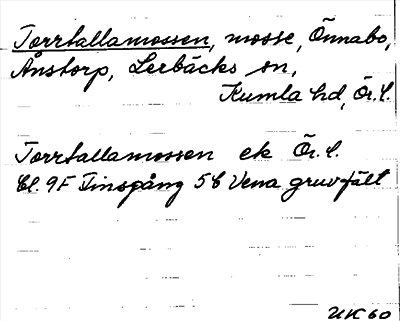 Torrtallamossen, mosse, Önnabo,
Ånstorp, Lerbäcks sn,
Kumla hd, Ör.l.
Torrtallamossen ek Ör.l.
Bl. 9F Finspång 5b Vena gruvfält
UK60